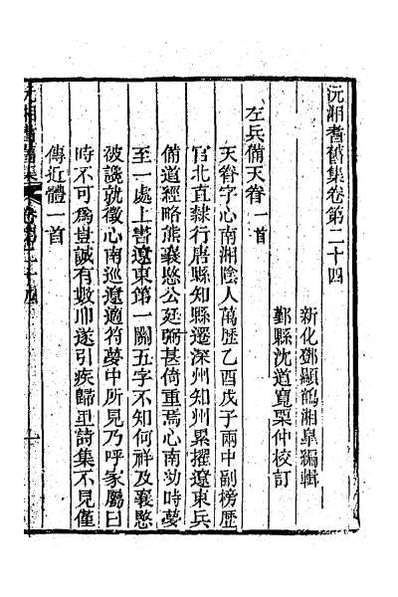 沅湘耆舊集卷第二十四
新化鄧顯鶴湘皋編輯
鄞縣沈道寬栗仲校訂
左兵備天眷一首
天眷字心南湘陰人萬歴乙酉戊子兩中副榜歴
官北直隸行唐縣知縣遷深州知州累擢遼東兵
備道經略熊襄愍公廷弼甚倚重焉心南幼時夢
至一處上書遼東第一關五字不知何祥及襄愍
被議就徵心南巡遼適符夢中所見乃呼家屬曰
時不可為豈誠有數耶遂引疾歸里詩集不見僅
傳近體一首
沅湘耆舊集
卷第二十四
一